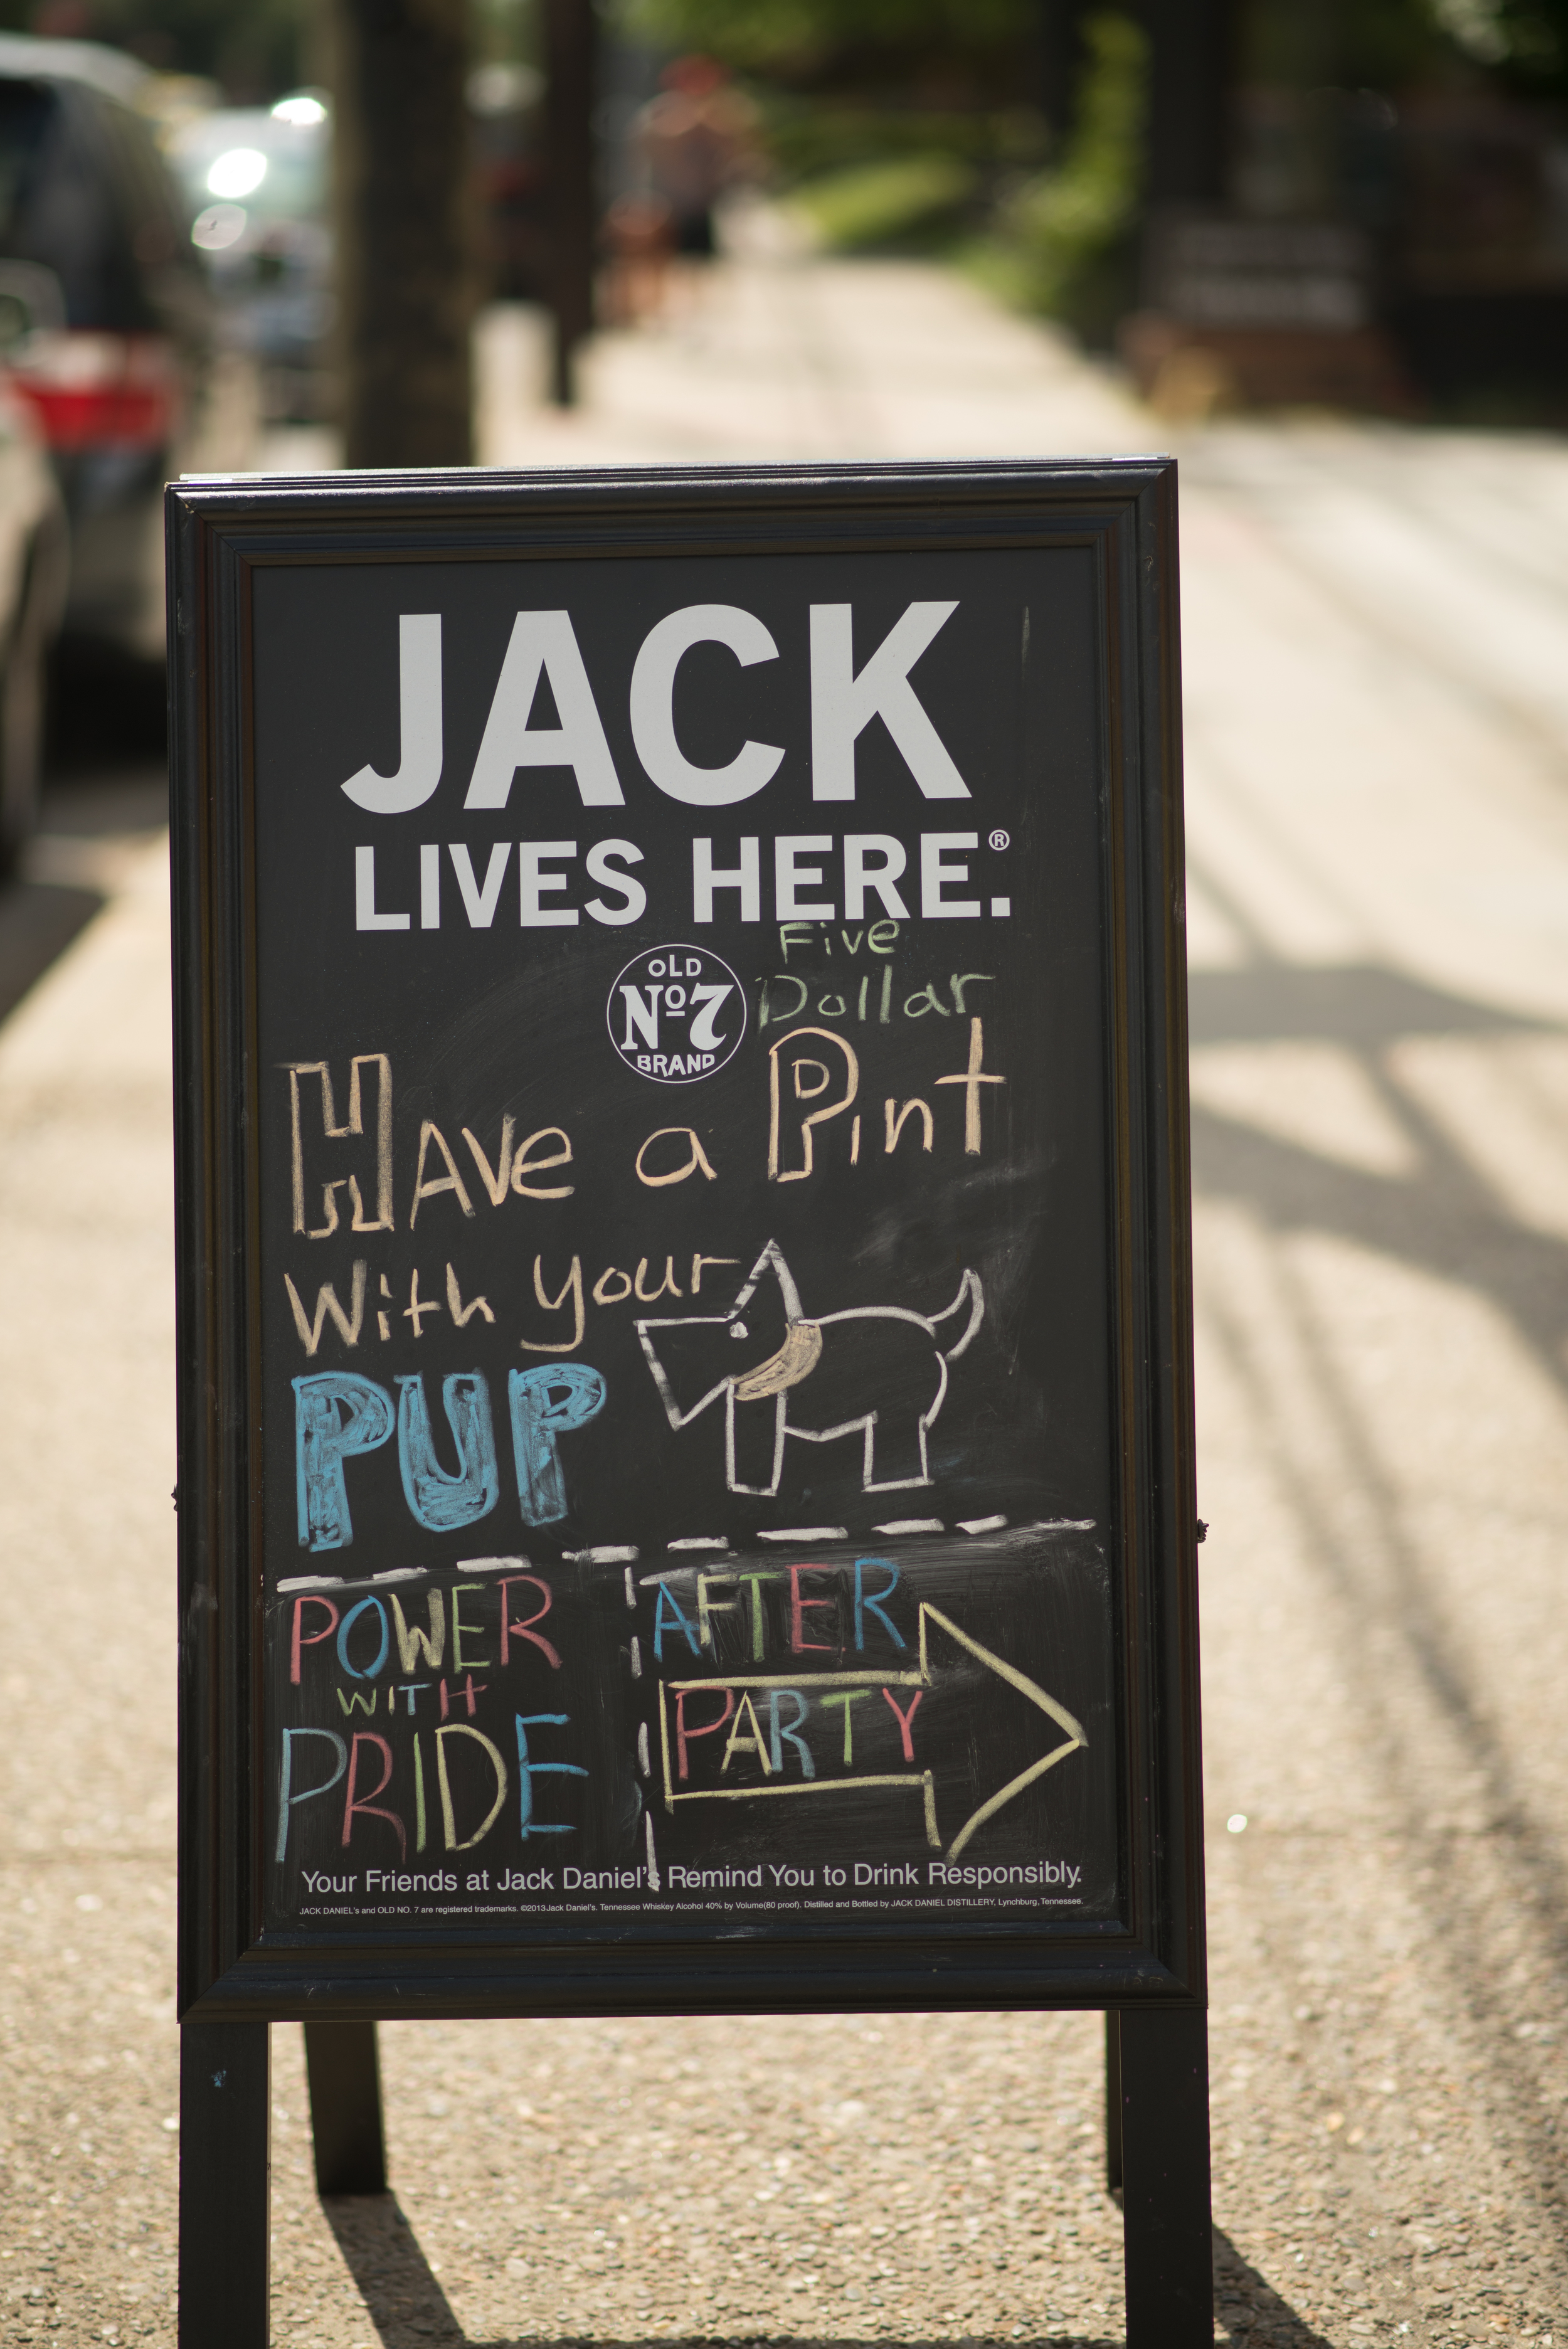 JACK
LIVES HERE.®
Five
Dollar
OLD
Nº7
BRAND
HAve a Pint
With your
PUP
POWER
WITH
PRIDE
AFTER
PARTY
Your Friends at Jack Daniel's Remind You to Drink Responsibly.
JACK DANIEL's and OLD NO. 7 are registered trademarks. ©2013 Jack Daniel's. Tennessee Whiskey Alcohol 40% by Volume(80 proof). Distilled and Bottled by JACK DANIEL DISTILLERY, Lynchburg, Tennessee.